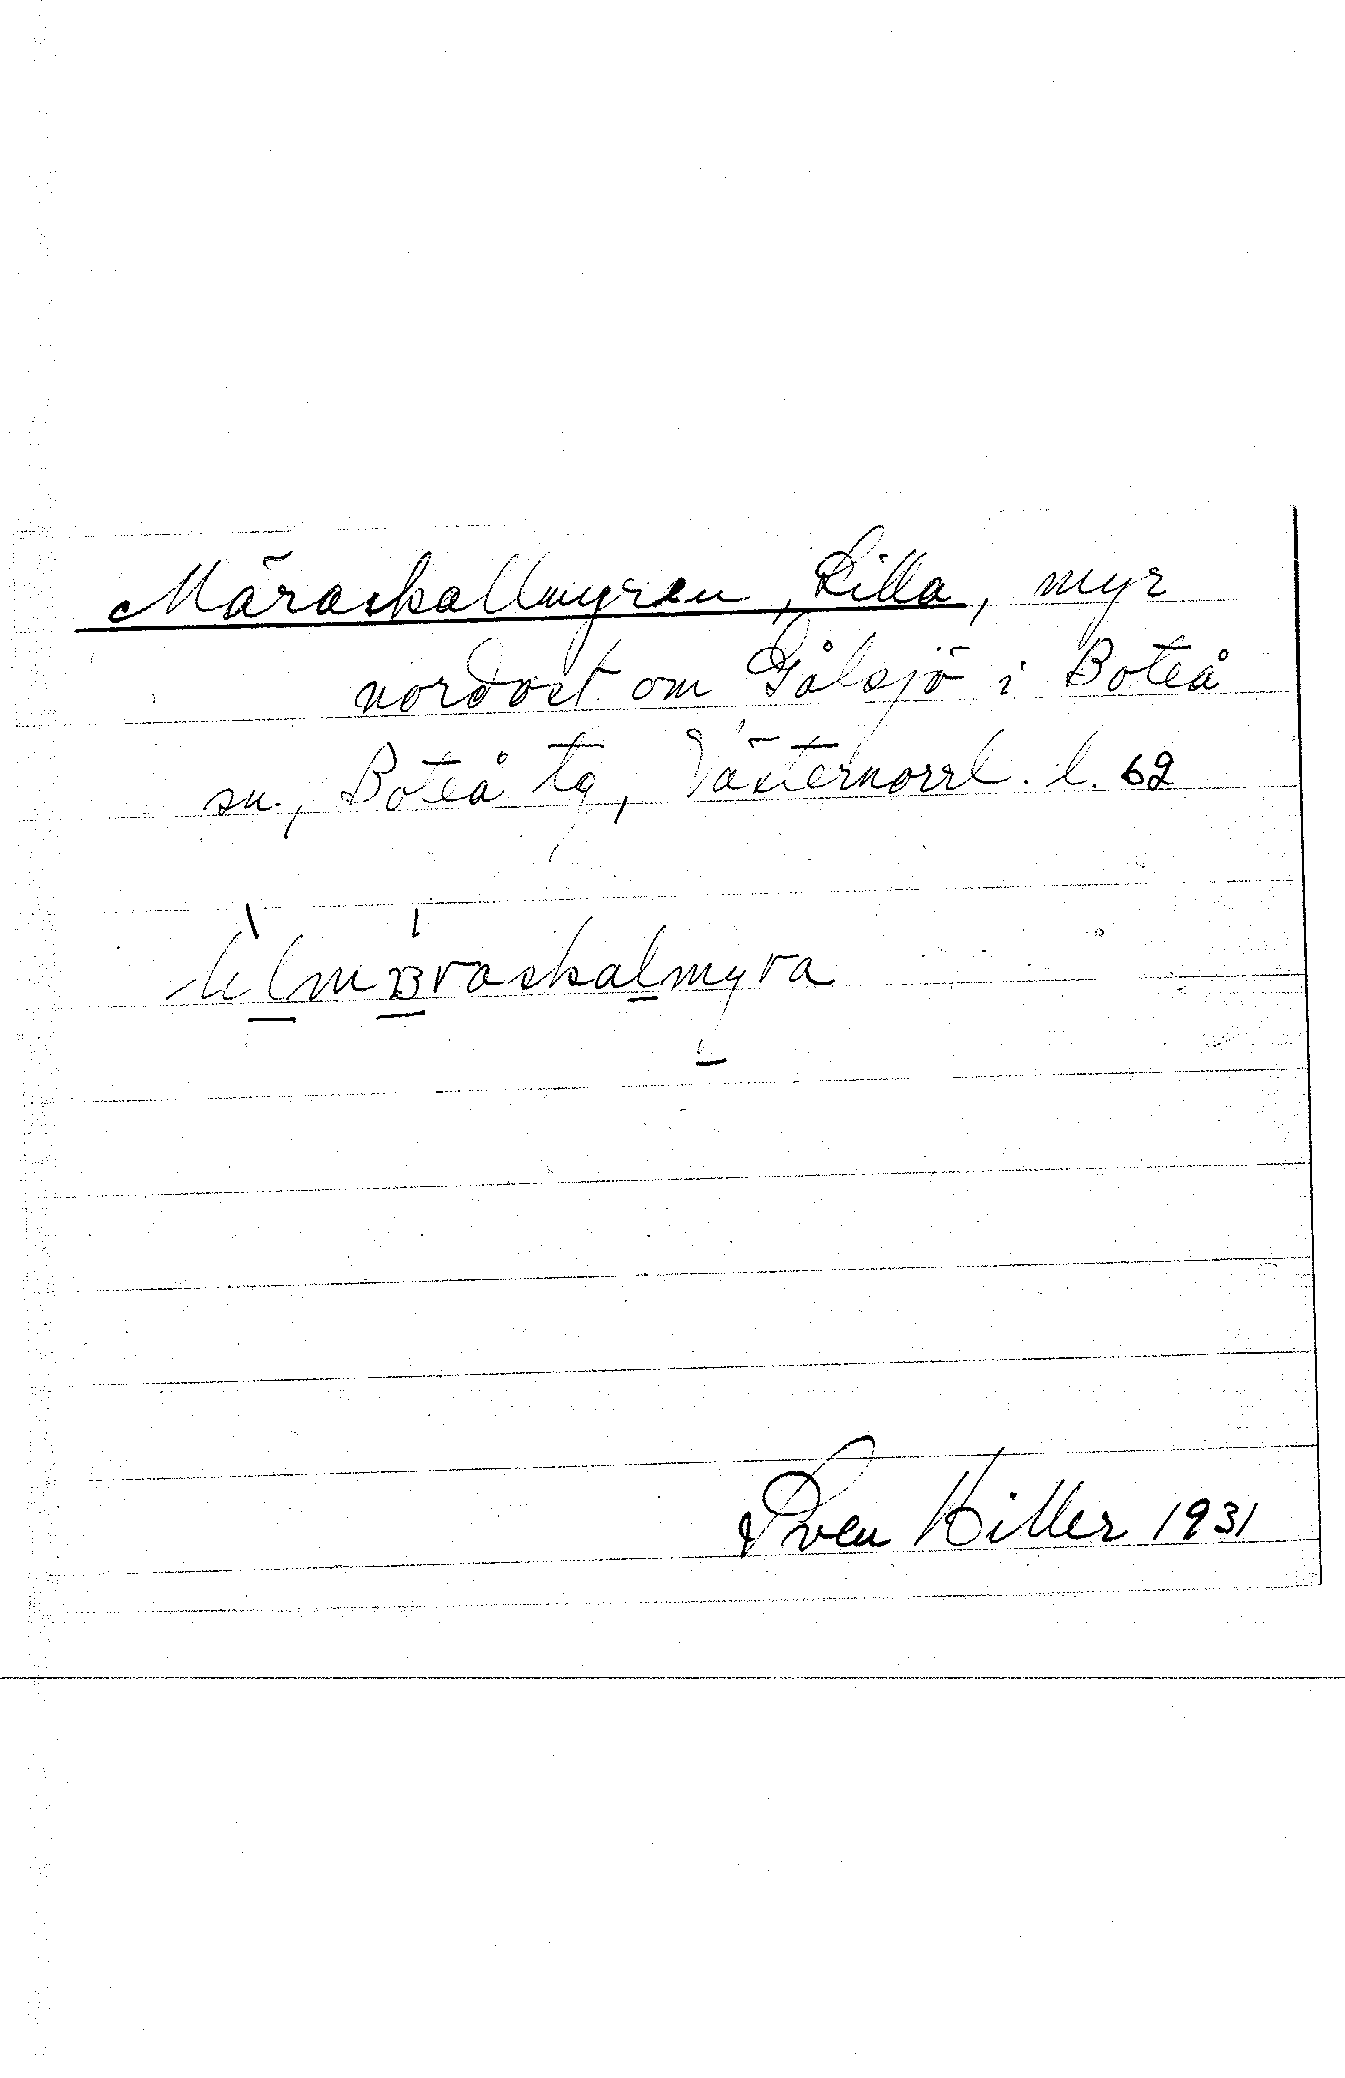 Märaskallmyren, Lilla, myr
nordost om Gålsjö i Boteå
sn., Boteå tg, Västernorrl. l. 62
Sven Hiller 1931